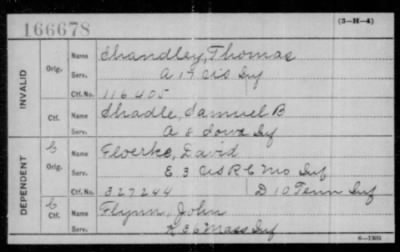 166678
(3-H-4)
INVALID
Orig.
Name Shandley, Thomas
Serv. A 19 Wis Inf
Ctf. No. 116405
Ctf.
Name Shadle, Samuel B
Serv. A 8 Iowa Inf
DEPENDENT
C
Orig.
Name Floerke, David
Serv. E 3 US R C Mo Inf
Ctf. No. 327244 D 10 Tenn Inf
C
Ctf.
Name Flynn, John
Serv. 36 Mass Inf